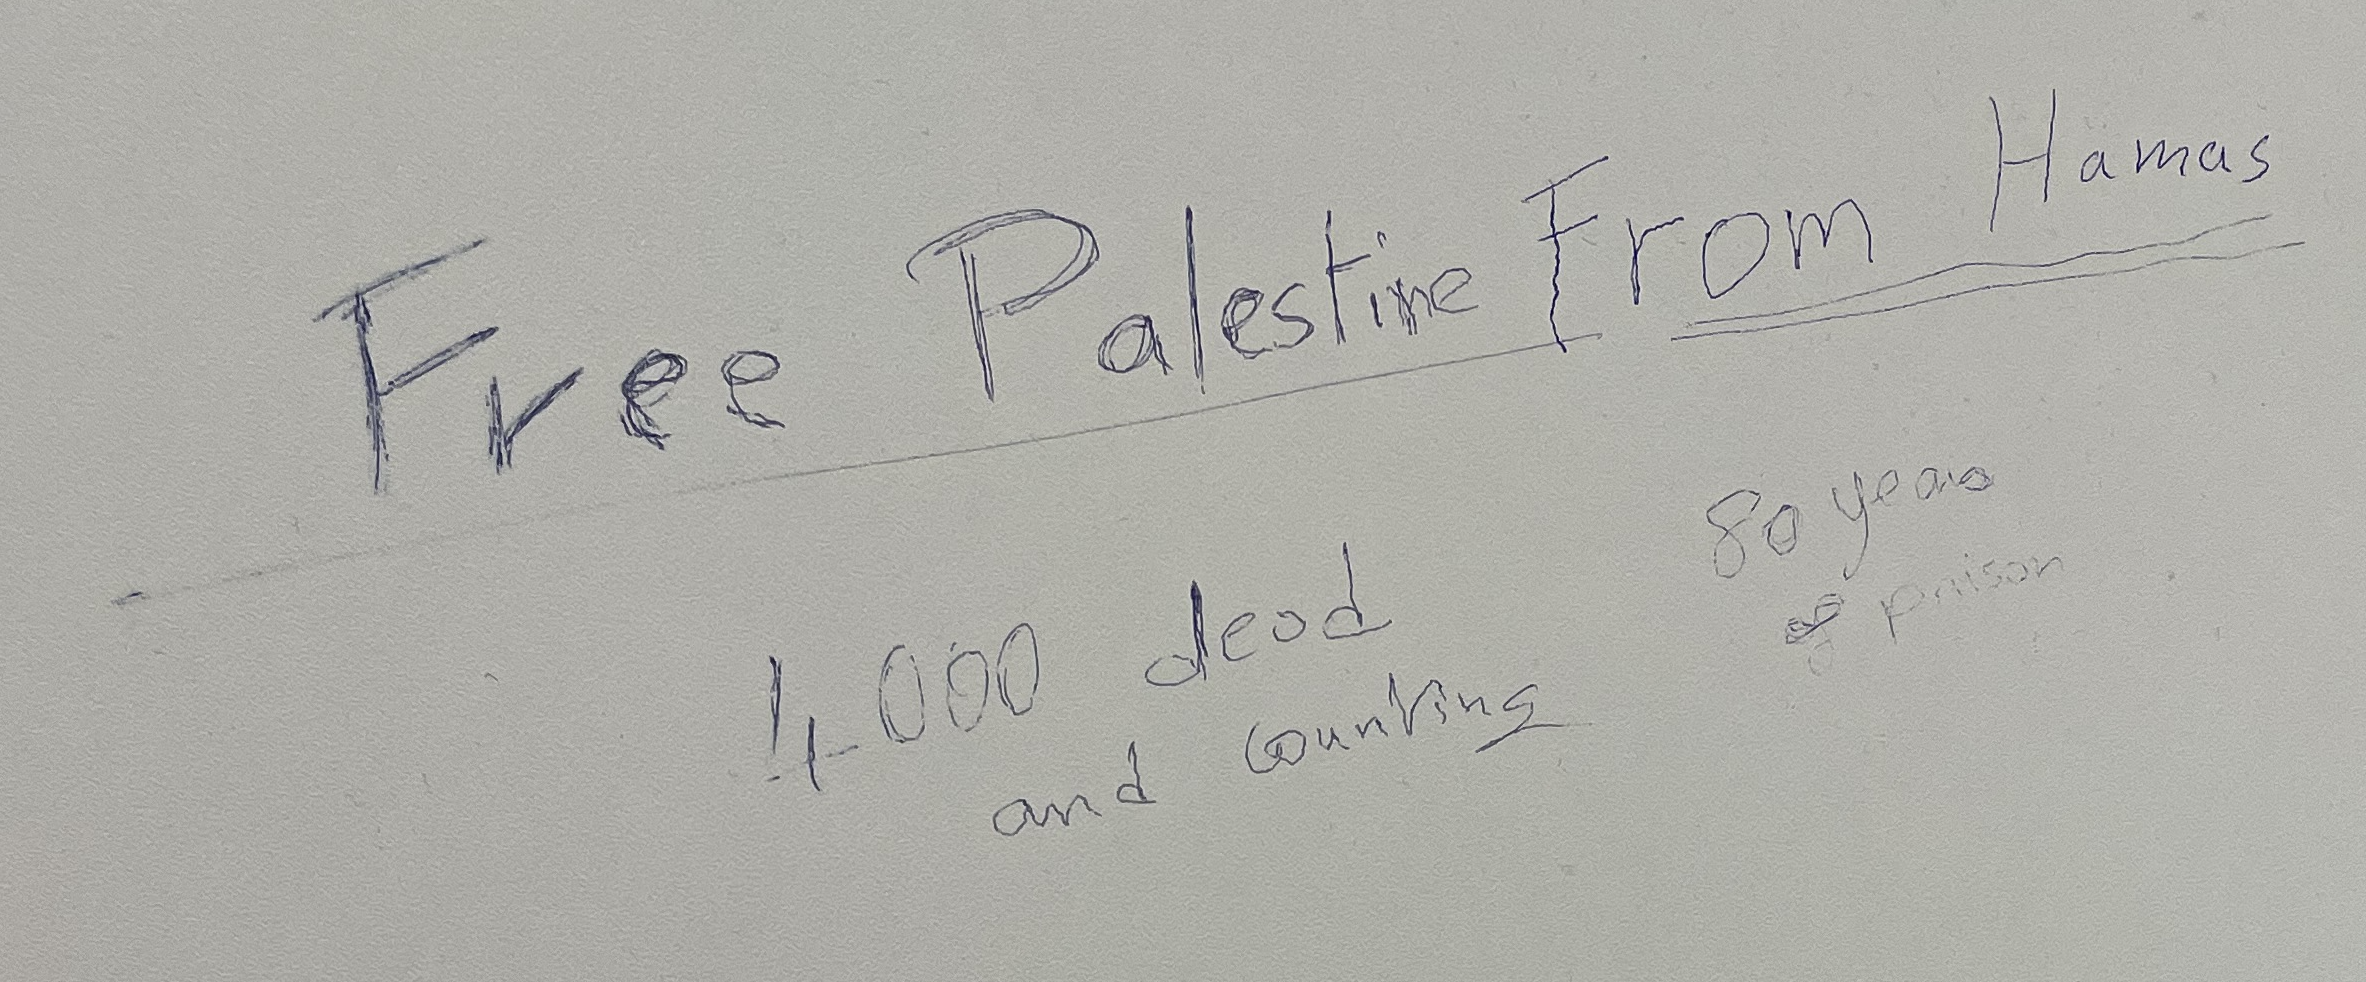 Free Palestine From Hamas
4000 dead
and counting
80 years
of prison